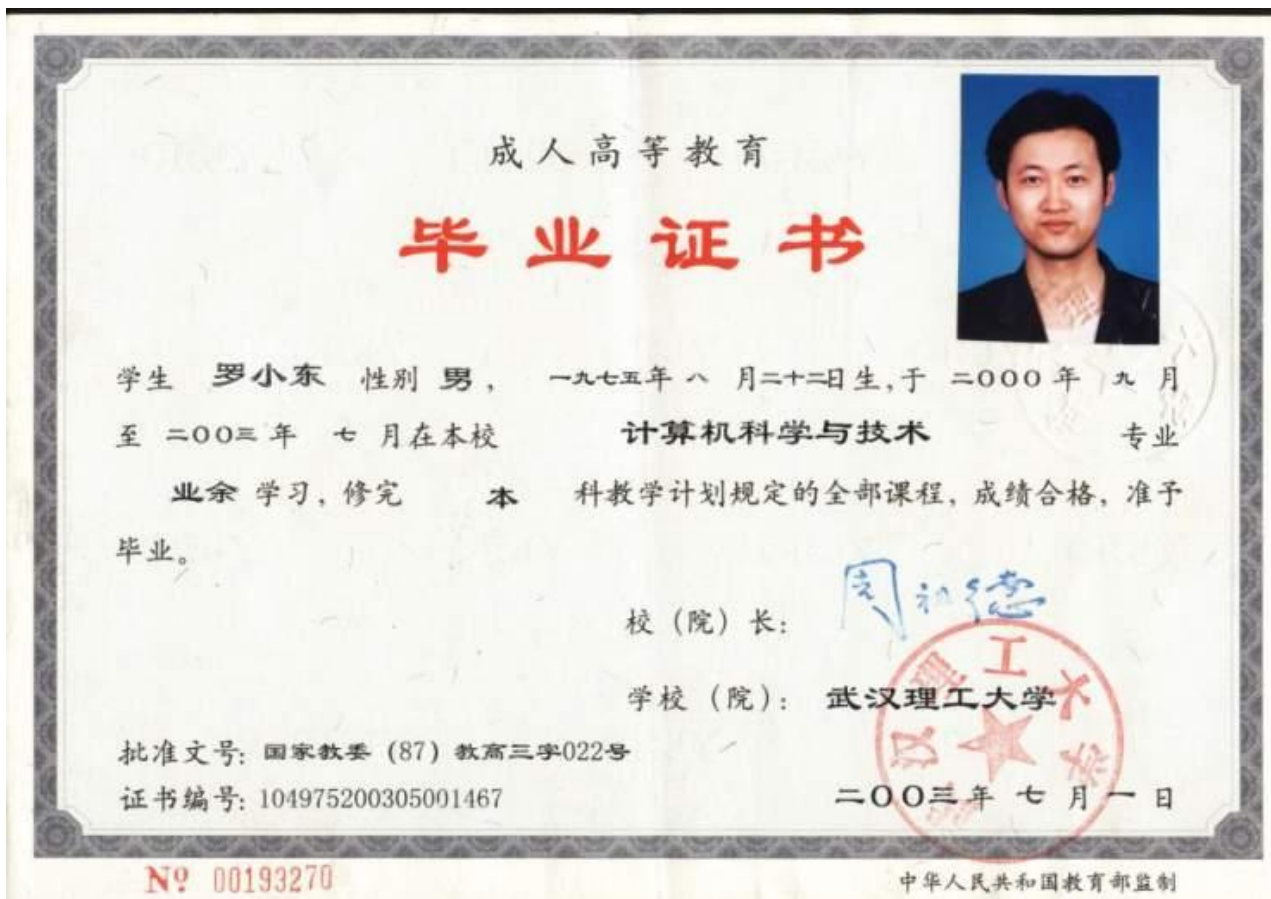 成人高等教育
毕业证书
学生 罗小东 性别 男， 一九七五年 八 月二十二日生，于 二000 年 九 月
至 二00三 年 七 月在本校 计算机科学与技术 专业
业余 学习，修完 本 科教学计划规定的全部课程，成绩合格，准予
毕业。
校（院）长：周祖德
学校（院）：武汉理工大学
批准文号：国家教委（87）教高三字022号
证书编号：104975200305001467
二00三年 七 月 一 日
№ 00193270
中华人民共和国教育部监制